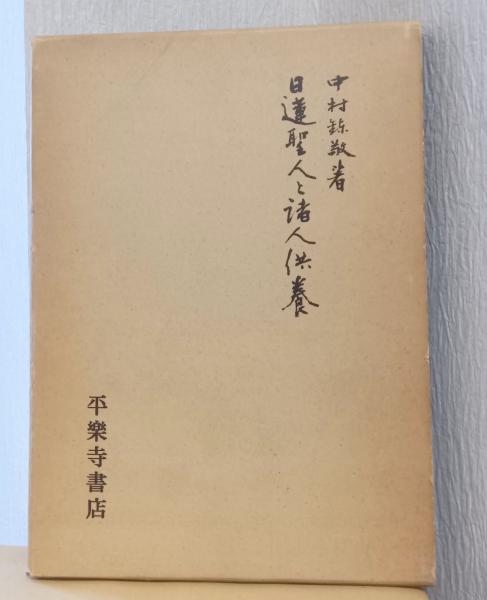 中村錬敬著
日蓮聖人と諸人供養
平樂寺書店